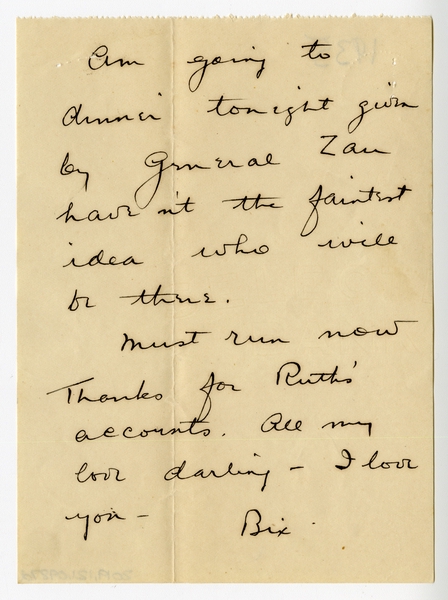 Am going to
dinner tonight given
by General Zau
have n't the faintest
idea who will
be there.
Must run now
Thanks for Ruth's
accounts. All my
love darling - I love
you - Bix.